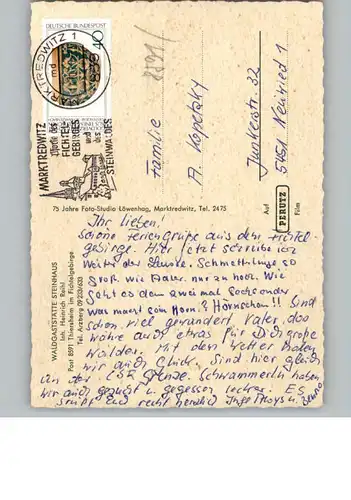 DEUTSCHE BUNDESPOST
40
MARKTREDWITZ 1
md
8591/
MARKTREDWITZ
Pforte des
FICHTEL-
GEBIRGES
und
des
STEINWALDES
Familie
A. Kopetzky
Junkerstr. 32
5451 Neuwied 1
75 Jahre Foto-Studio Löwenhag, Marktredwitz, Tel. 2475
Auf
PERUTZ
Film
WALDGASTSTÄTTE STEINHAUS
Inh. Heinrich Reihl
Post 8591 Thiersheim im Fichtelgebirge
Tel. Arzberg 09233/603
Ihr lieben!
Schöne Feriengrüße aus dem Fichtel-
gebirge. Hier jetzt schreibe ich
weiter der Schmetterlinge so
groß wie Adler. nur zu hoch. Wie
geht es dem zweimal Sechsender
was macht sein Horn? Hörnchen!!! Sind
schon viel gewandert Vater, das
wäre auch etwas für Dich große
Wälder. Mit dem Wetter haben
wir auch Glück. Sind hier gleich
an der CSR Grenze. Schwammerln haben
wir auch gesucht u. gegessen lecker. Es
grüßt Euch recht herzlich Inge Aloys u.